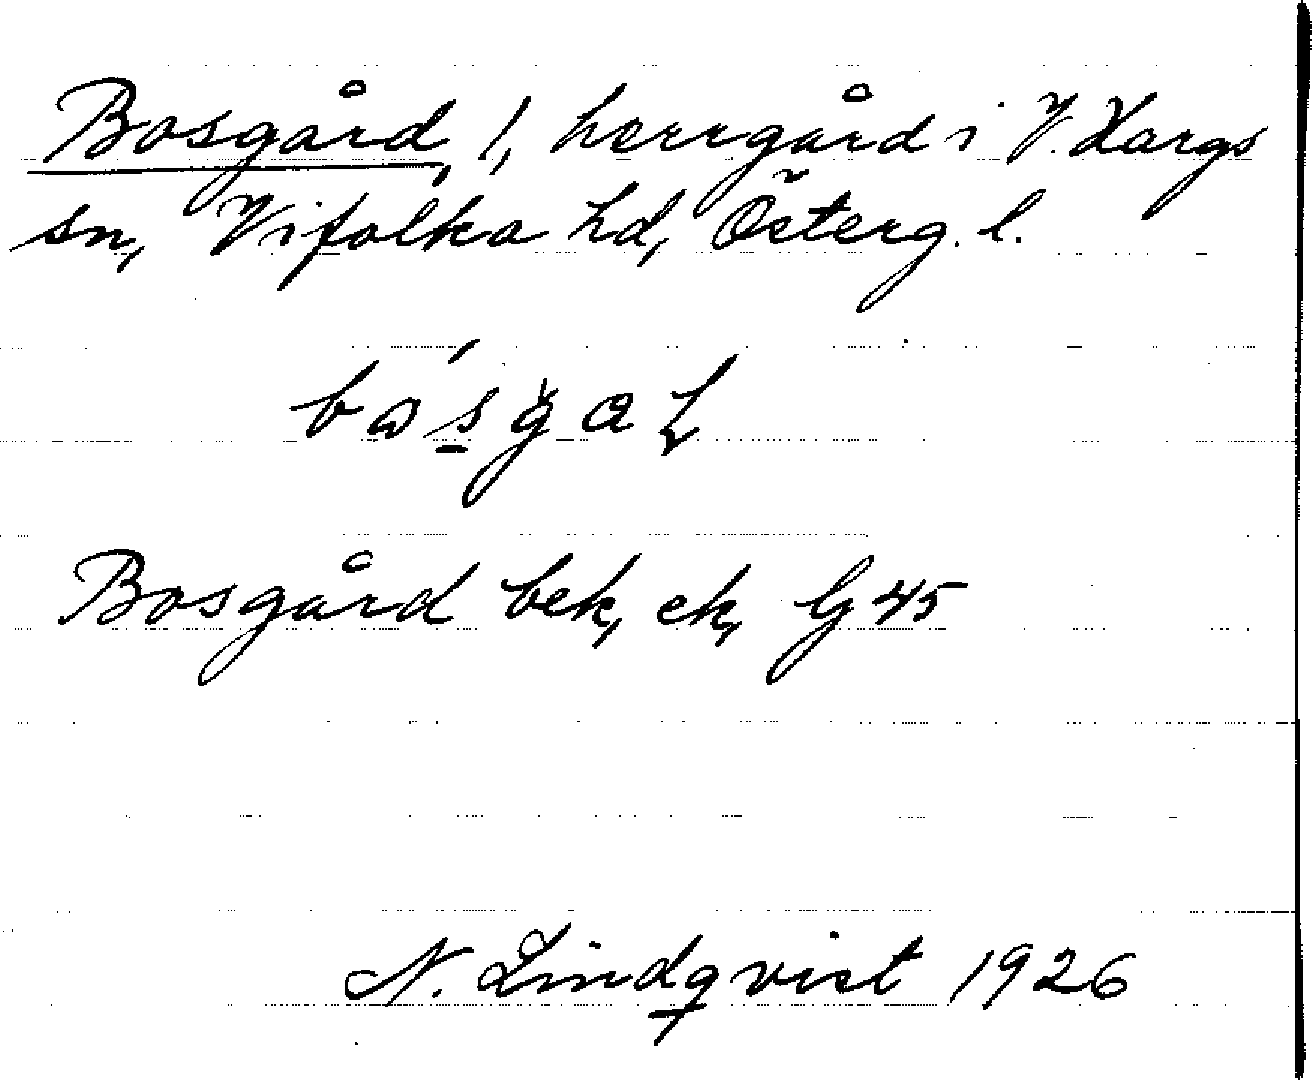 Bosgård, 1, herrgård i V. Hargs
sn, Vifolka hd, Österg. l.
Bosgård bek, ek, G 45
N. Lindqvist 1926